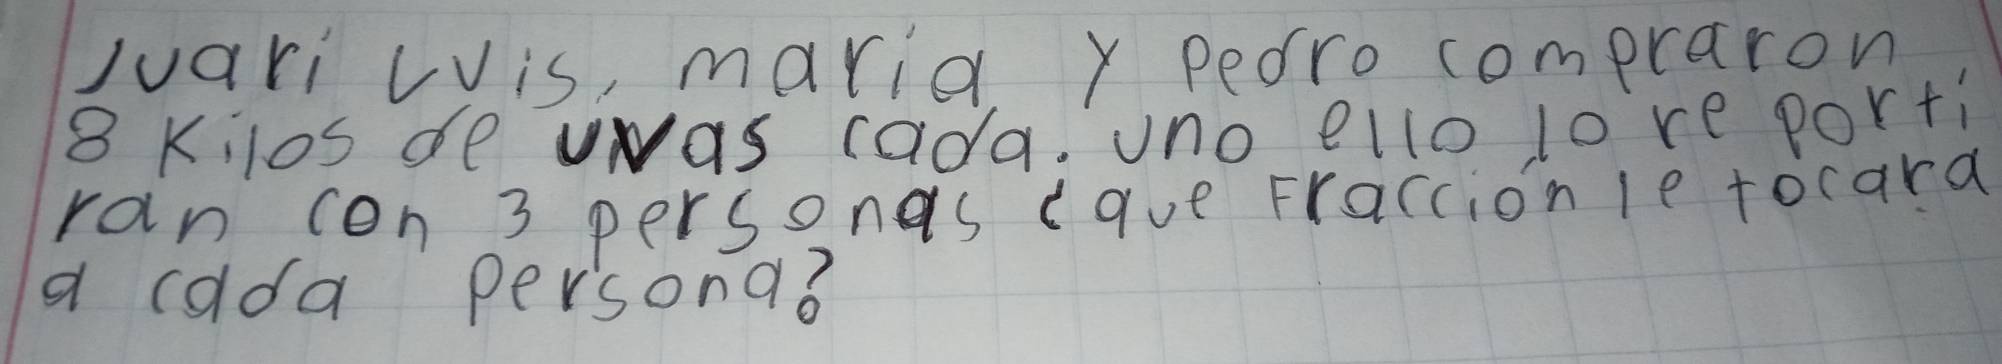 Juari Luis, maria y pedro compraron
8 Kilos de uvas cada. uno ello lo re porti
ran con 3 personas ¿que Fracción le tocara
a cada persona?